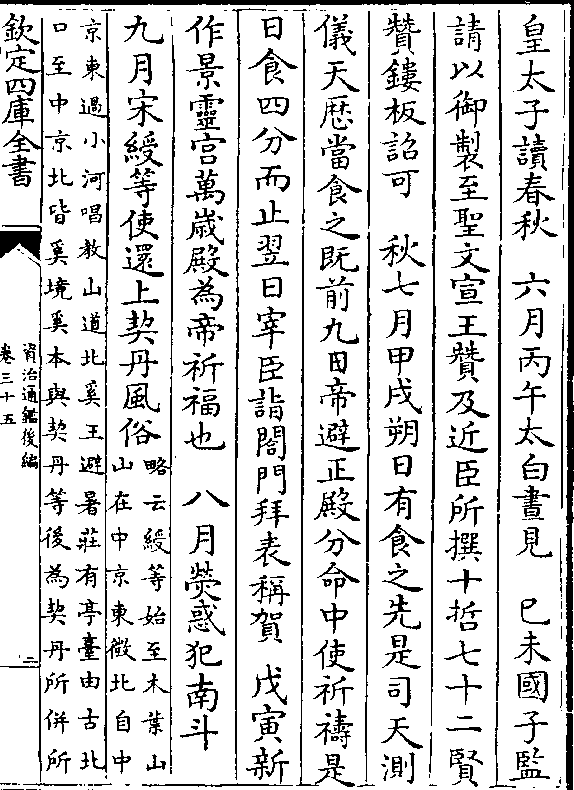 皇太子讀春秋　六月丙午太白晝見　己未國子監
請以御製至聖文宣王贊及近臣所撰十哲七十二賢
贊鏤板詔可　秋七月甲戌朔日有食之先是司天測
儀天厯當食之既前九日帝避正殿分命中使祈禱是
日食四分而止翌日宰臣詣閤門拜表稱賀　戊寅新
作景靈宫萬歲殿為帝祈福也　八月熒惑犯南斗
九月宋綬等使還上契丹風俗
略云綬等始至木葉山
山在中京東微北自中
京東過小河唱教山道北奚王避暑莊有亭臺由古北
口至中京北皆奚境奚本與契丹等後為契丹所併所
欽定四庫全書
資治通鑑後編
卷三十五
二